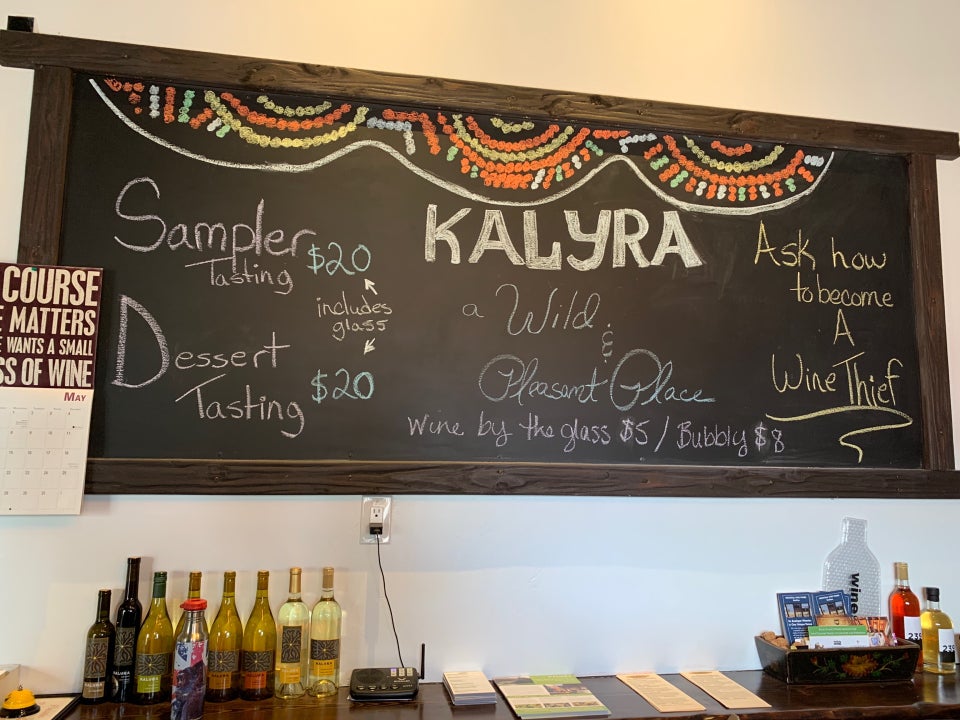 KALYRA
Sampler
Tasting
$20
includes
glass
Dessert
Tasting
$20
a Wild
&
Pleasant Place
Wine by the glass $5 / Bubbly $8
Ask how
to become
A
Wine Thief
COURSE
MATTERS
WANTS A SMALL
OF WINE
MAY
KALYRA
KALYRA
wine